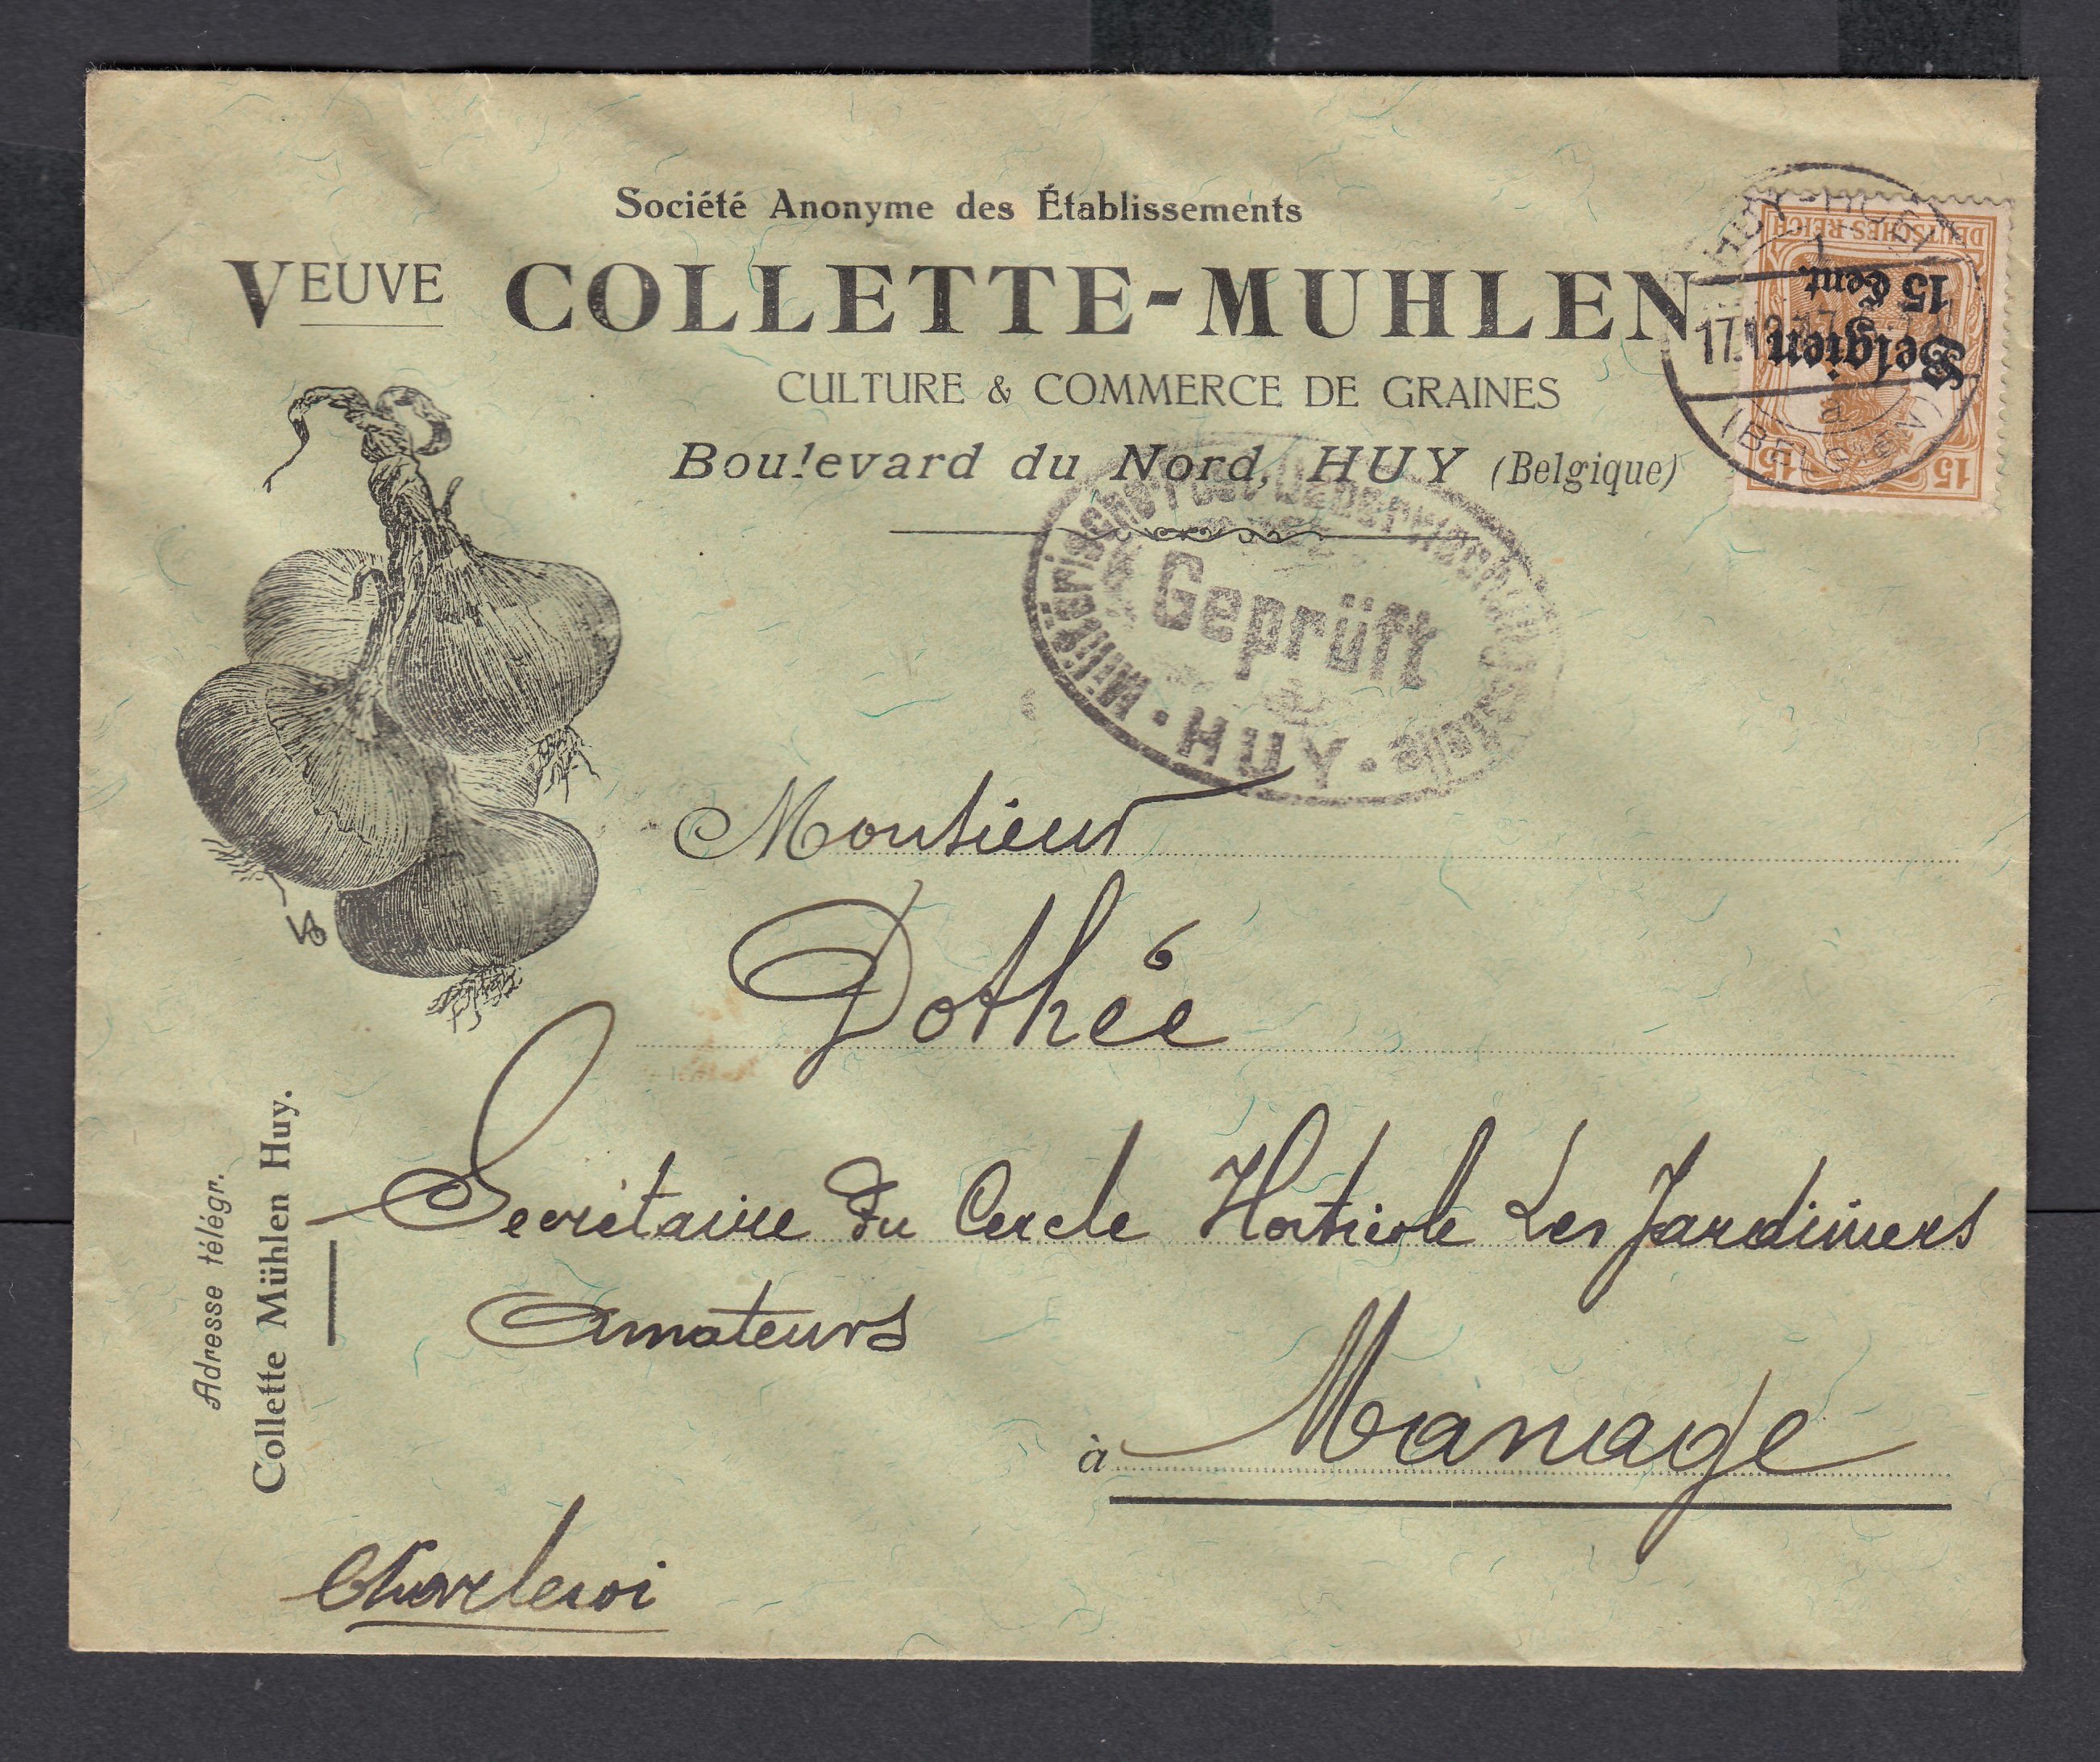 Société Anonyme des Établissements
VEUVE COLLETTE-MUHLEN
CULTURE & COMMERCE DE GRAINES
Boulevard du Nord, HUY (Belgique)
HUY - HOEI
17.12.17
(BELGIEN)
a
DEUTSCHES REICH
Belgien
15 Cent.
15 15
Militärische Post-Ueberwachungsstelle
Geprüft
· HUY ·
Monsieur
Dothée
Secrétaire Du Cercle Horticole Les Jardiniers
Amateurs
à Manage
Charleroi
Adresse télégr.
Collette Mühlen Huy.